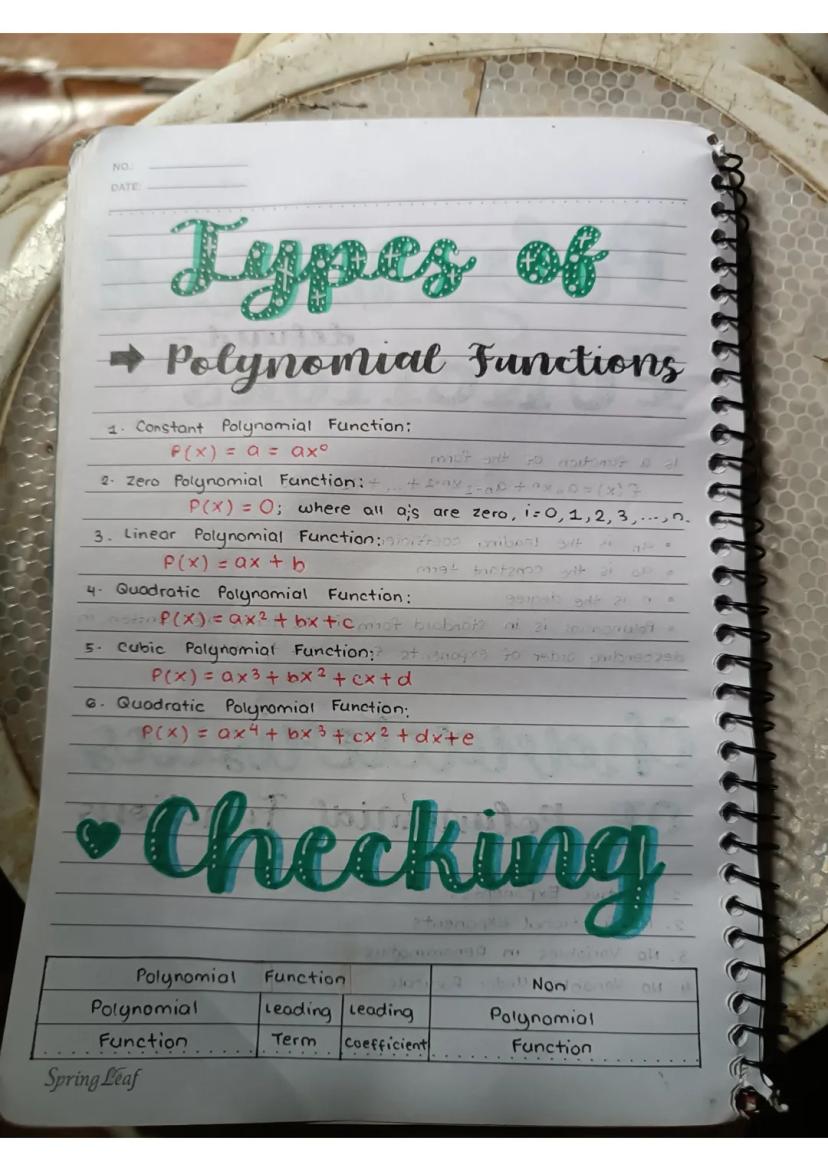 NO.:
DATE:
Types of
➡ Polynomial Functions
1. Constant Polynomial Function:
P(x) = a = ax⁰
2. Zero Polynomial Function:
P(x) = 0; where all aᵢs are zero, i=0, 1, 2, 3, ..., n.
3. Linear Polynomial Function:
P(x) = ax + b
4. Quadratic Polynomial Function:
P(x) = ax² + bx + c
5. Cubic Polynomial Function:
P(x) = ax³ + bx² + cx + d
6. Quadratic Polynomial Function:
P(x) = ax⁴ + bx³ + cx² + dx + e
♥ Checking
Polynomial Function Non
Polynomial Leading Leading Polynomial
Function Term Coefficient Function
Spring Leaf